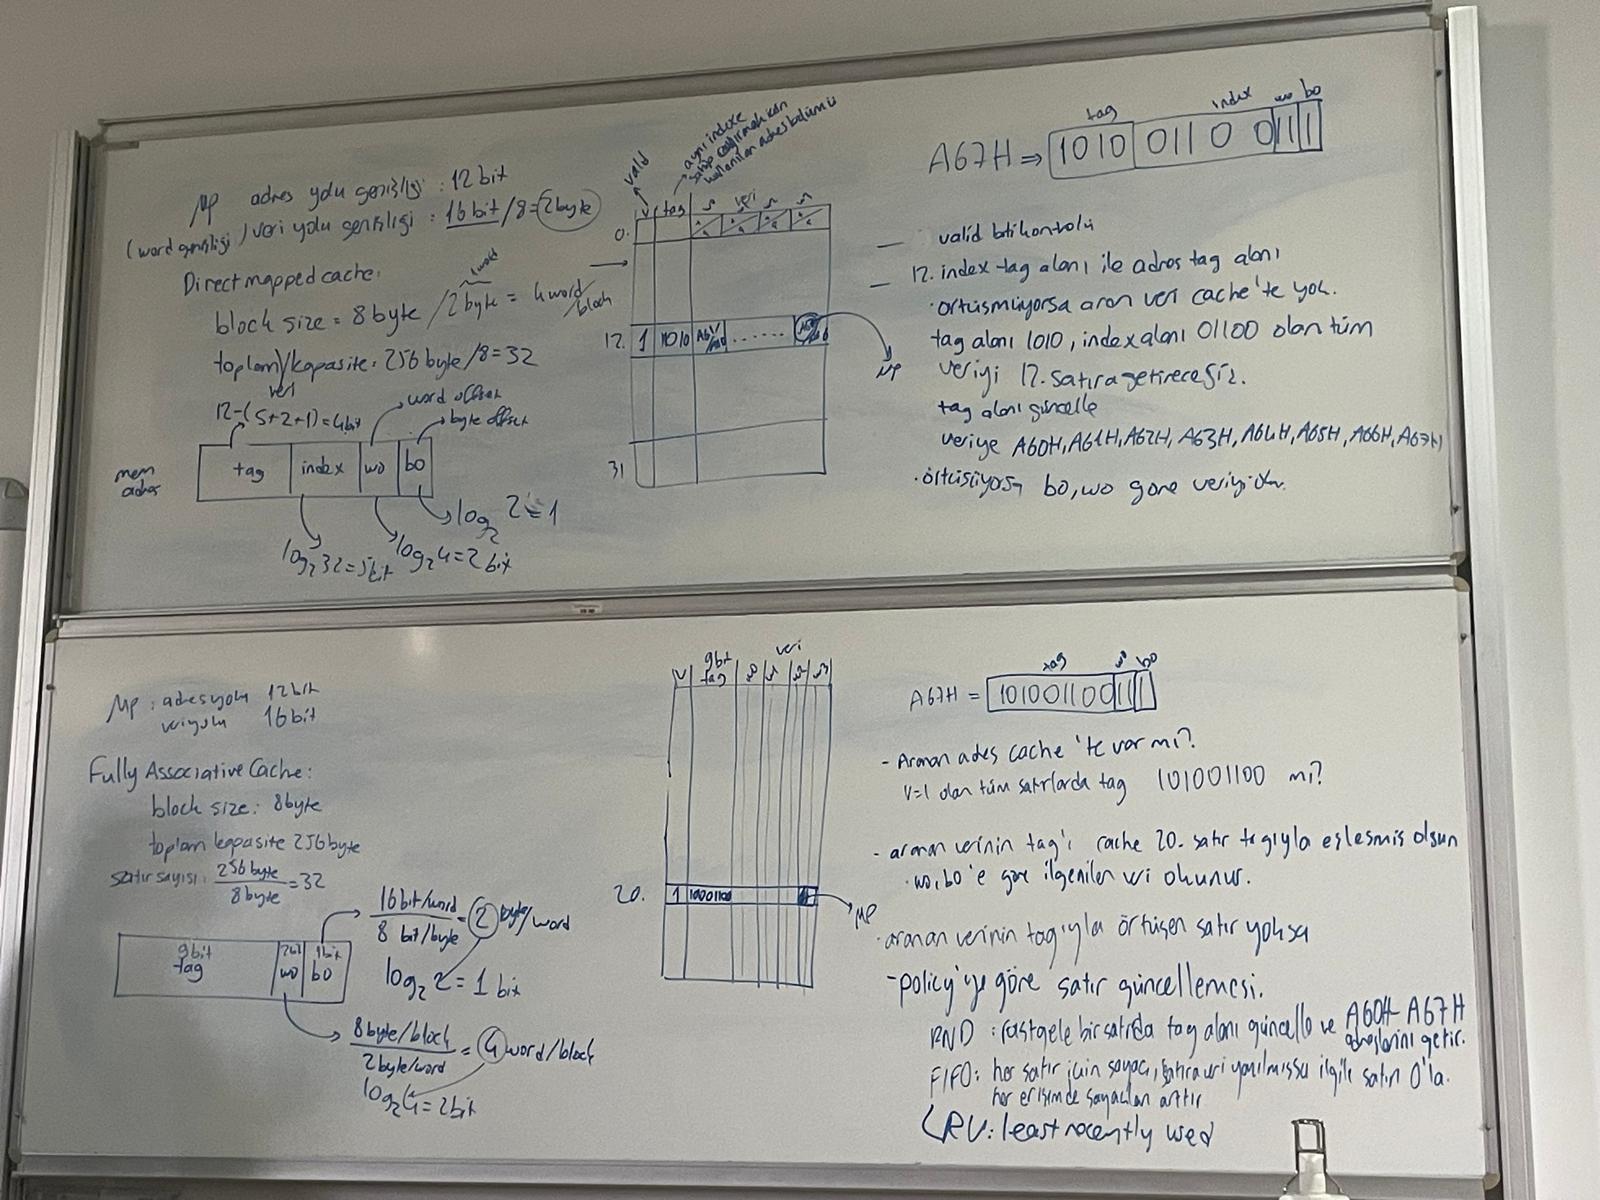 MP adres yolu genişliği : 12 bit
(word genişliği) veri yolu genişliği : 16 bit /8 = 2 byte
Direct mapped cache:
1 word
block size = 8 byte / 2 byte = 4 word/block
toplam kapasite : 256 byte /8 = 32
veri
12-(5+2+1)=4bit
word offset
byte offset
mem adres
tag index wo bo
log₂ 2 = 1
log₂ 32 = 5 bit
log₂ 4 = 2 bit
valid
aynı indexe
kullanılan adres bölümü
V tag veri
0.
12. 1 1010 ......
MP
31
tag index wo bo
A67H ⇒ 1010 011 0 0 11 1
— valid biti kontrolü
— 12. index tag alanı ile adres tag alanı
· örtüşmüyorsa aran veri cache'te yok.
tag alanı 1010, index alanı 01100 olan tüm
veriyi 12. satıra getireceğiz.
tag alanı güncelle
veriye A60H, A61H, A62H, A63H, A64H, A65H, A66H, A67H
· örtüşüyorsa bo, wo gore veriyi
MP : adres yolu 12 bit
veri yolu 16 bit
Fully Associative Cache:
block size: 8 byte
toplam kapasite 256 byte
satır sayısı: 256 byte / 8 byte = 32
16 bit/word / 8 bit/byte = 2 byte/word
log₂ 2 = 1 bit
9bit 2bit 1bit
tag wo bo
8 byte/block / 2 byte/word = 4 word/block
log₂ 4 = 2 bit
veri
V 9bit tag w0 w1 w2 w3
20. 1
MP
tag wo bo
A67H = 101001100 11 1
- Aranan adres cache'te var mı?
V=1 olan tüm satırlarda tag 101001100 mi?
- aranan verinin tag'i cache 20. satır tagıyla eşleşmiş olsun
· wo, bo'e göre ilgenilen veri okunur.
· aranan verinin tagıyla örtüşen satır yoksa
- policy'ye göre satır güncellemesi.
RND : rastgele bir satırda tag alanı güncelle ve A60H-A67H
adreslerini getir.
FIFO: her satır için sayaç, satıra veri yazılmışsa ilgili satırı 0'la.
her erişimde sayaçları arttır
LRU: least recently used